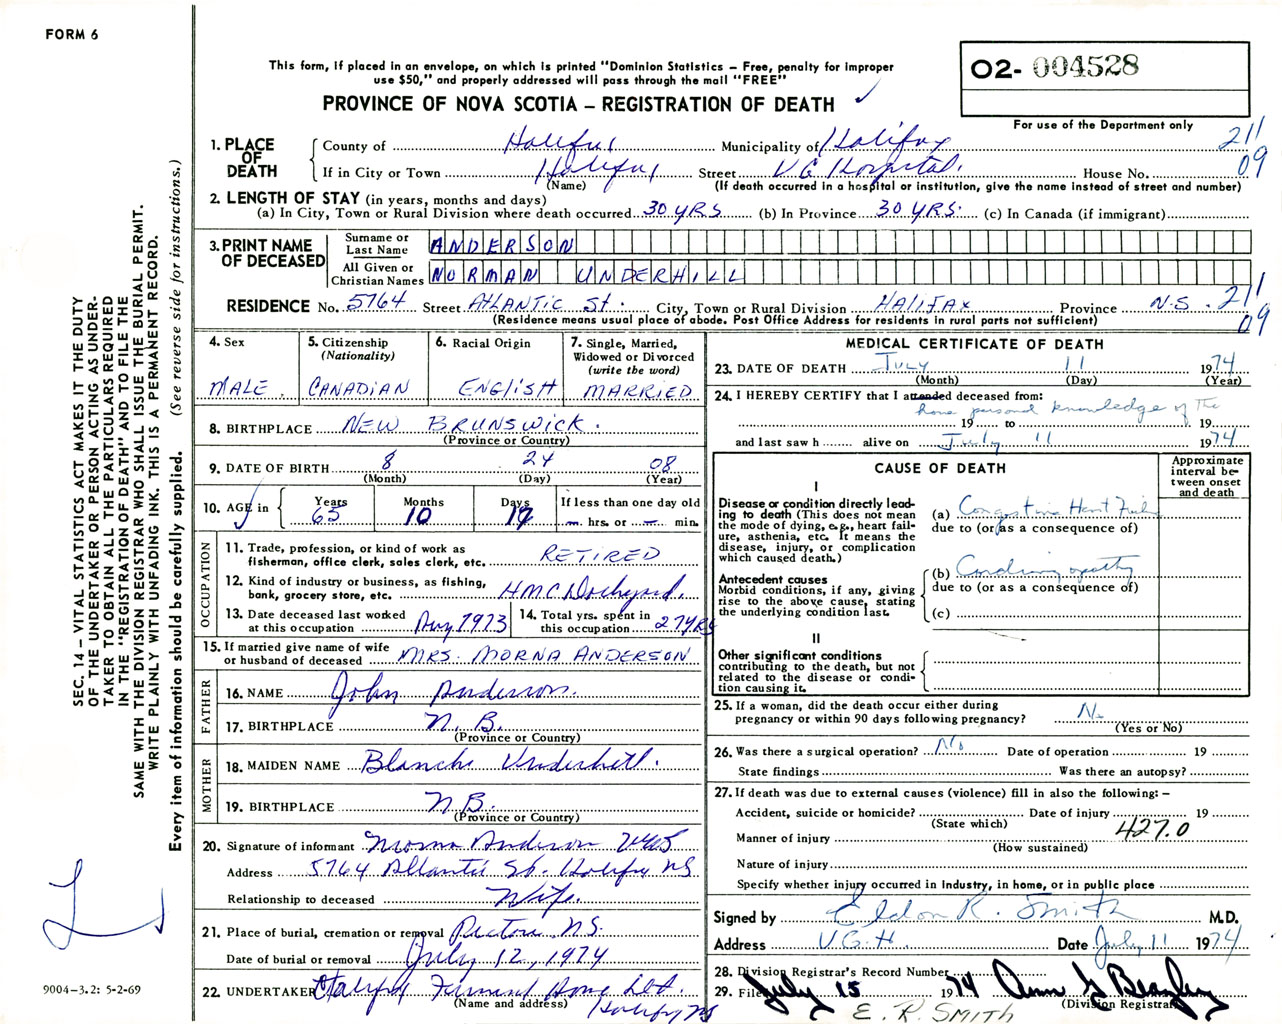 FORM 6
This form, if placed in an envelope, on which is printed "Dominion Statistics – Free, penalty for improper
use $50," and properly addressed will pass through the mail "FREE"
PROVINCE OF NOVA SCOTIA – REGISTRATION OF DEATH
O2- 004528
For use of the Department only
211
09
1. PLACE OF DEATH
County of Halifax Municipality of Halifax
If in City or Town Halifax Street VG Hospital. House No.
(Name) (If death occurred in a hospital or institution, give the name instead of street and number)
2. LENGTH OF STAY (in years, months and days)
(a) In City, Town or Rural Division where death occurred 30 YRS (b) In Province 30 YRS. (c) In Canada (if immigrant)
3. PRINT NAME OF DECEASED
Surname or Last Name ANDERSON
All Given or Christian Names NORMAN UNDERHILL
RESIDENCE No. 5764 Street ATLANTIC St. City, Town or Rural Division HALIFAX Province N.S.
211
09
(Residence means usual place of abode. Post Office Address for residents in rural parts not sufficient)
4. Sex
MALE.
5. Citizenship
(Nationality)
CANADIAN
6. Racial Origin
ENGLISH
7. Single, Married,
Widowed or Divorced
(write the word)
MARRIED
8. BIRTHPLACE NEW BRUNSWICK.
(Province or Country)
9. DATE OF BIRTH 8 24 08
(Month) (Day) (Year)
10. AGE in
Years Months Days If less than one day old
65 10 17 – hrs. or – min.
OCCUPATION
11. Trade, profession, or kind of work as
fisherman, office clerk, sales clerk, etc. RETIRED
12. Kind of industry or business, as fishing,
bank, grocery store, etc. HMC Dockyard.
13. Date deceased last worked
at this occupation Aug 1973
14. Total yrs. spent in
this occupation 27 YRS
15. If married give name of wife
or husband of deceased MRS. MORNA ANDERSON
FATHER
16. NAME John Anderson.
17. BIRTHPLACE N.B.
(Province or Country)
MOTHER
18. MAIDEN NAME Blanche Underhill.
19. BIRTHPLACE N.B.
(Province or Country)
20. Signature of informant Morna Anderson
Address 5764 Atlantic St. Halifax NS
Relationship to deceased Wife.
21. Place of burial, cremation or removal Pictou N.S.
Date of burial or removal July 12, 1974
22. UNDERTAKER Halifax Funeral Home Ltd.
(Name and address) Halifax NS
MEDICAL CERTIFICATE OF DEATH
23. DATE OF DEATH July 11 1974
(Month) (Day) (Year)
24. I HEREBY CERTIFY that I attended deceased from:
have personal knowledge of the
19 to 19
and last saw h alive on July 11 1974
CAUSE OF DEATH
Approximate
interval be-
tween onset
and death
I
Disease or condition directly lead-
ing to death (This does not mean
the mode of dying, e.g., heart fail-
ure, asthenia, etc. It means the
disease, injury, or complication
which caused death.)
(a) Congestive Heart Failure
due to (or as a consequence of)
Antecedent causes
Morbid conditions, if any, giving
rise to the above cause, stating
the underlying condition last.
(b) Cardiomyopathy
due to (or as a consequence of)
(c)
II
Other significant conditions
contributing to the death, but not
related to the disease or condi-
tion causing it.
25. If a woman, did the death occur either during
pregnancy or within 90 days following pregnancy? No
(Yes or No)
26. Was there a surgical operation? No Date of operation 19
State findings Was there an autopsy?
27. If death was due to external causes (violence) fill in also the following: –
Accident, suicide or homicide? Date of injury 19
(State which)
427.0
Manner of injury
(How sustained)
Nature of injury
Specify whether injury occurred in Industry, in home, or in public place
Signed by Eldon R. Smith M.D.
Address V.G.H. Date July 11 1974
28. Division Registrar's Record Number
29. Filed July 15 1974 Ann G Beazley
(Division Registrar)
E. R. SMITH
SEC. 14 – VITAL STATISTICS ACT MAKES IT THE DUTY
OF THE UNDERTAKER OR PERSON ACTING AS UNDER-
TAKER TO OBTAIN ALL THE PARTICULARS REQUIRED
IN THE "REGISTRATION OF DEATH" AND TO FILE THE
SAME WITH THE DIVISION REGISTRAR WHO SHALL ISSUE THE BURIAL PERMIT.
WRITE PLAINLY WITH UNFADING INK. THIS IS A PERMANENT RECORD.
Every item of information should be carefully supplied. (See reverse side for instructions.)
9004–3.2: 5-2-69